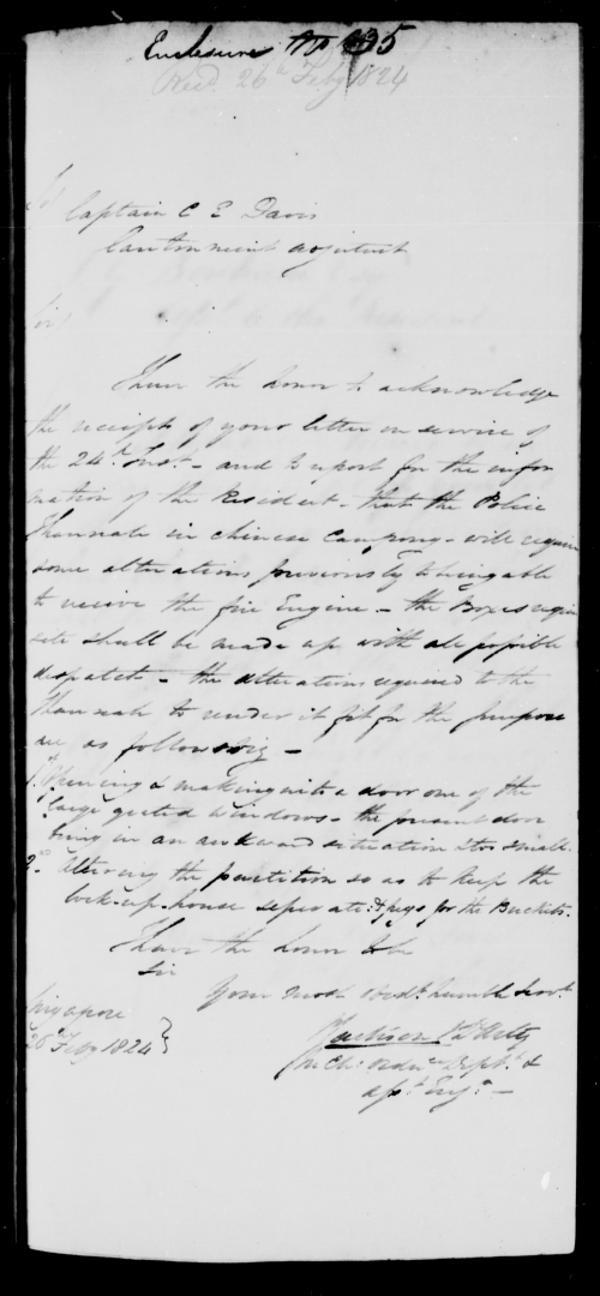 Enclosure No 35
Recd. 26th Feby 1824
To
Captain C E Davis
Cantonment adjutant
Sir,
I have the honor to acknowledge
the receipt of your letter on service of
the 24th Inst. - and to report for the infor
mation of the Resident - that the Police
Thannah in Chinese Campong - will require
some alterations previously to being able
to receive the fire Engine - the Boxes requi
site shall be made up with all possible
despatch - the alterations required to the
Thannah to render it fit for the purpose
are as follows viz -
1st Opening & making into a door one of the
large grated windows - the present door
being in an awkward situation & too small.
2nd Altering the partition so as to keep the
lock-up-house seperate & pegs for the Buckets.
I have the honor to be
Sir
Your most Obedt. humble Servt.
Singapore
26th Feby 1824
Jackson Lt Arty
In Ch: Ordnce Deptt. &
asst. Engr. -